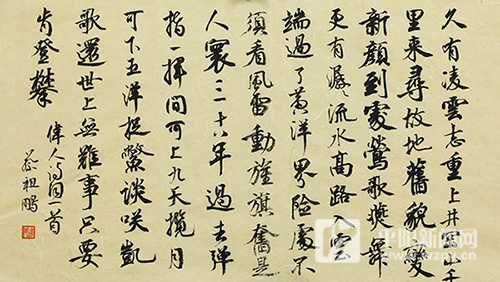 久有凌雲志重上井岡山千
里来尋故地舊貌變
新顔到處鶯歌燕舞
更有潺潺流水高路入雲
端過了黄洋界險處不
須看風雷動旌旗奮是
人寰三十八年過去弹
指一揮間可上九天攬月
可下五洋捉鱉談笑凱
歌還世上無難事只要
肯登攀
偉人詞一首
蔡祖鵬
平阳新闻网